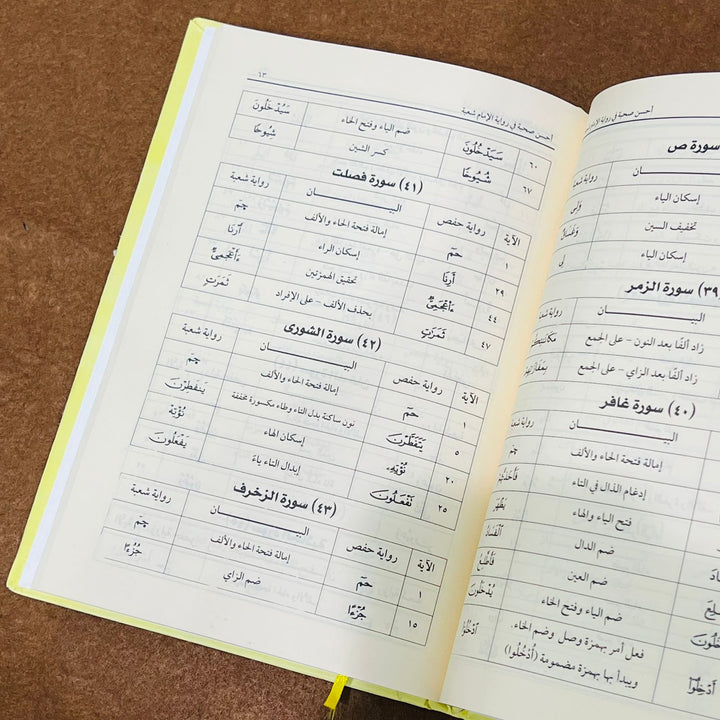 أحسن صحبة في رواية الإمام شعبة
سورة ص
البيان رواية شعبة
إسكان الياء وَلِي
تخفيف السين وَغَسَاقٌ
إسكان الياء لِي
(٣٩) سورة الزمر
البيان رواية شعبة
زاد ألفًا بعد النون - على الجمع
زاد ألفًا بعد الزاي - على الجمع
(٤٠) سورة غافر
البيان رواية شعبة
إمالة فتحة الحاء والألف حمٓ
إدغام الذال في التاء
فتح الياء والهاء يَظْهَرَ
ضم الدال ٱلْفَسَادُ
ضم العين فَأَطَّلِعُ
ضم الياء وفتح الخاء يُدْخَلُونَ
فعل أمر بهمزة وصل وضم الخاء. ٱدْخُلُوٓا۟
ويبدأ بها بهمزة مضمومة (أُدْخُلُوا) أَدْخِلُوٓا۟
١٣ أحسن صحبة في رواية الإمام شعبة
٦٠ سَيَدْخُلُونَ ضم الياء وفتح الخاء سَيُدْخَلُونَ
٦٧ شُيُوخًا كسر الشين شِيُوخًا
(٤١) سورة فصلت
الآية رواية حفص البيان رواية شعبة
١ حمٓ إمالة فتحة الحاء والألف حمٓ
٢٩ أَرِنَا إسكان الراء أَرْنَا
٤٤ ءَا۬عْجَمِىٌّ تحقيق الهمزتين ءَأَعْجَمِىٌّ
٤٧ ثَمَرَٰتٍ بحذف الألف - على الإفراد ثَمَرَتٍ
(٤٢) سورة الشورى
الآية رواية حفص البيان رواية شعبة
١ حمٓ إمالة فتحة الحاء والألف حمٓ
٥ يَتَفَطَّرْنَ نون ساكنة بدل التاء وطاء مكسورة مخففة يَنفَطِرْنَ
٢٠ نُؤْتِهِۦ إسكان الهاء نُؤْتِهْ
٢٥ تَفْعَلُونَ إبدال التاء ياءً يَفْعَلُونَ
(٤٣) سورة الزخرف
الآية رواية حفص البيان رواية شعبة
١ حمٓ إمالة فتحة الحاء والألف حمٓ
١٥ جُزْءًا ضم الزاي جُزُءًا